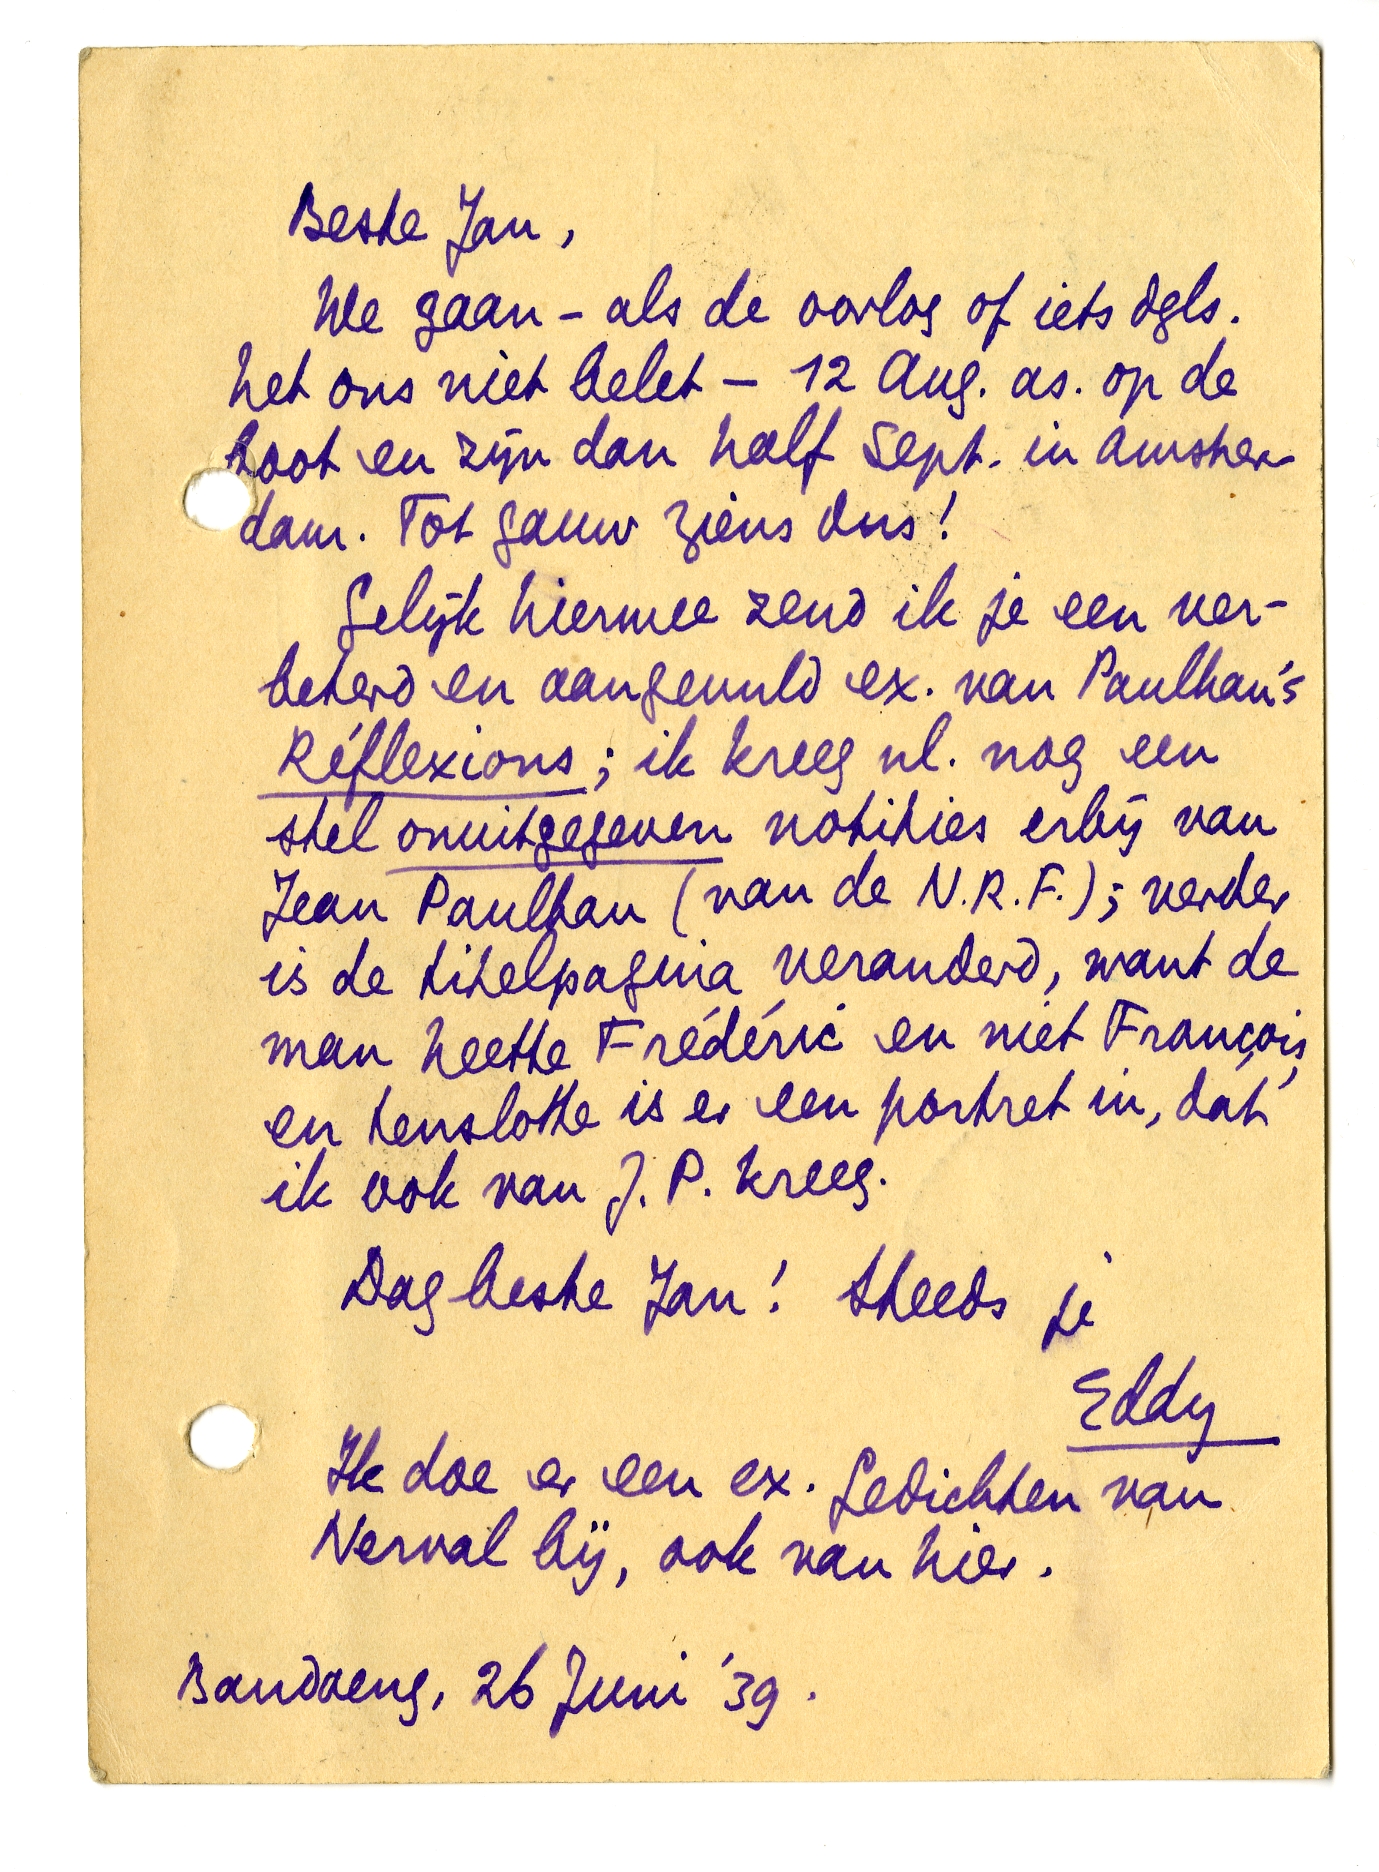 Beste Jan,
We gaan – als de oorlog of iets dgls.
het ons niet belet – 12 Aug. as. op de
boot en zijn dan half Sept. in Amster-
dam. Tot gauw ziens dus!
Gelijk hiermee zend ik je een ver-
beterd en aangevuld ex. van Paulhan's
Réflexions; ik kreeg nl. nog een
stel onuitgegeven notities erbij van
Jean Paulhan (van de N.R.F.); verder
is de titelpagina veranderd, want de
man heette Frédéric en niet François,
en tenslotte is er een portret in, dat
ik ook van J.P. kreeg.
Dag beste Jan! Steeds je
Eddy
Ik doe er een ex. Gedichten van
Nerval bij, ook van hier.
Bandoeng, 26 Juni '39.